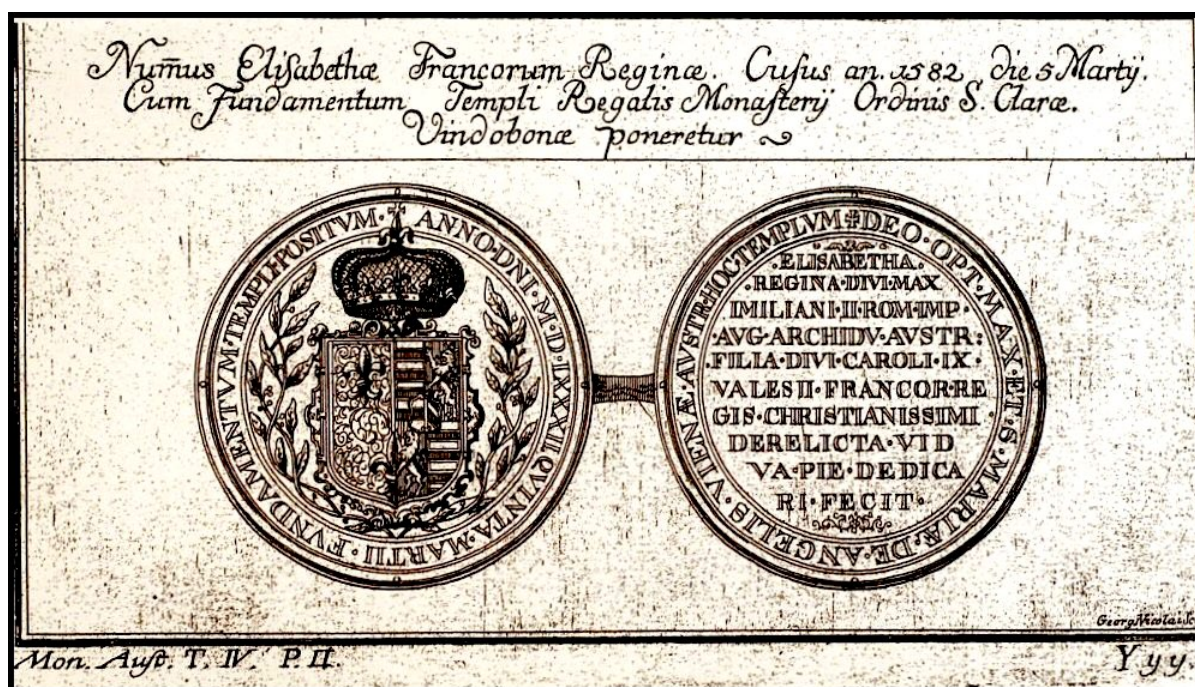 Num̃us Elisabethæ Francorum Reginæ. Cusus an. 1582 die 5 Martij.
Cum Fundamentum Templi Regalis Monasterij Ordinis S. Claræ.
Vindobonæ poneretur
ANNO·DNI·M·D·LXXXII·QVINTA·MARTII·FVNDAMENTVM·TEMPLI·POSITVM·
DEO·OPT·MAX·ET·S·MARIÆ·DE·ANGELIS·VIENÆ·AVSTR·HOC·TEMPLVM
·ELISABETHA·
·REGINA·DIVI·MAX
IMILIANI·II·ROM·IMP·
·AVG·ARCHIDV·AVSTR:
·FILIA·DIVI·CAROLI·IX·
VALESII·FRANCOR·RE
GIS·CHRISTIANISSIMI·
DERELICTA·VID
VA·PIE·DEDICA
RI·FECIT·
Georg Nicolai Sc
Mon. Aust. T. IV. P. II.
Yyy.